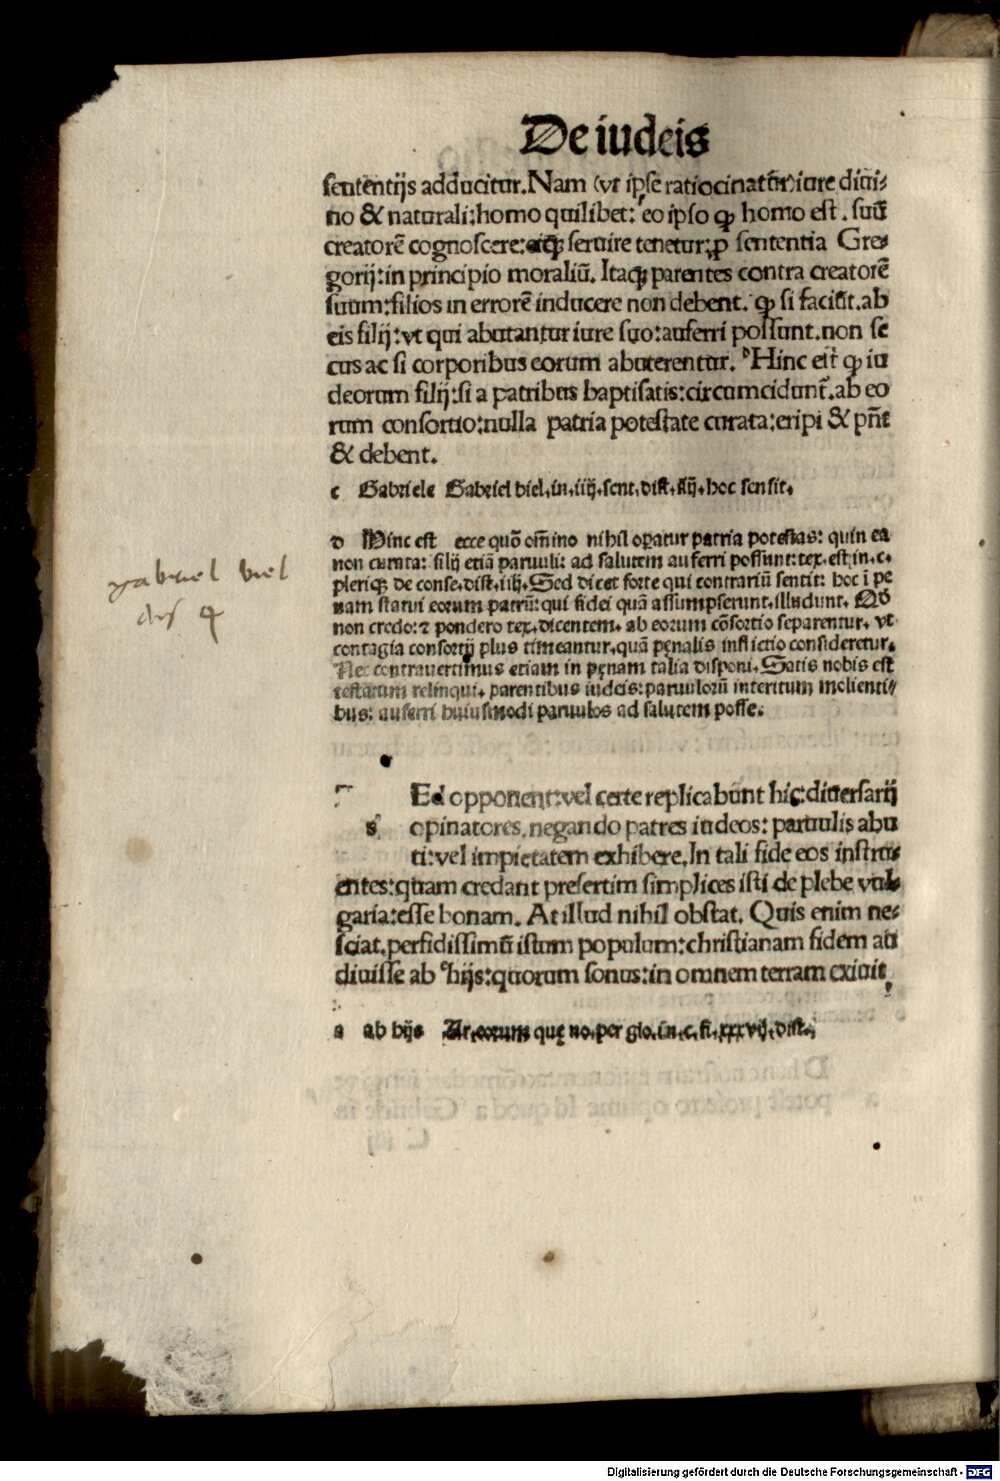 De iudeis
sententijs adducitur. Nam (vt ipse ratiocinat̄ur) iure diui⸗
no & naturali: homo quilibet: eo ipso ꝙ homo est. suū
creatorē cognoscere: eiqꝫ seruire tenetur: ꝓ sententia Gre⸗
gorij: in principio moraliū. Itaqꝫ parentes contra creatorē
suum: filios in errorē inducere non debent. ꝙ si faciūt. ab
eis filij: vt qui abutantur iure suo: auferri possunt. non se
cus ac si corporibus eorum abuterentur. ᵈHinc est ꝙ iu
deorum filij: si a patribus baptisatis: circumcidunt̄. ab eo
rum consortio: nulla patria potestate curata: eripi & pn̄t
& debent.
c Gabriele Gabriel biel. in. iiij. sent. dist. iiij. hoc sensit.
d Hinc est ecce quō om̄ino nihil operatur patria potestas: quin ea
non curata: filij etiā paruuli: ad salutem auferri possunt: tex. est in. c.
pleriqꝫ de conse. dist. iiij. Sed dicet forte qui contrariū sentit: hoc ī pe
nam statui eorum patrū: qui fidei quā assumpserunt. illudunt. Qd̄
non credo: ⁊ pondero tex. dicentem. ab eorum cōsortio separentur. vt
contagia consortij plus timeantur. quā pęnalis inflictio consideretur.
Nec contrauertimus etiam in pęnam talia disponi. Satis nobis est
testatum relinqui. parentibus iudeis: paruulorū interitum molienti⸗
bus: auferri huiusmodi paruulos ad salutem posse.
gabriel biel
dis 4
Ed opponent: vel certe replicabunt hic: diuersarij
s opinatores. negando patres iudeos: paruulis abu
ti: vel impietatem exhibere. In tali fide eos instru⸗
entes: quam credant presertim simplices isti de plebe vul⸗
garia: esse bonam. At illud nihil obstat. Quis enim ne⸗
sciat. perfidissimū istum populum: christianam fidem au
diuisse ab ᵉhijs: quorum sonus: in omnem terram exiuit
a ab hijs Ar. eorum quę no. per glo. in. c. fi. xxxvij. dist.
Digitalisierung gefördert durch die Deutsche Forschungsgemeinschaft - DFG